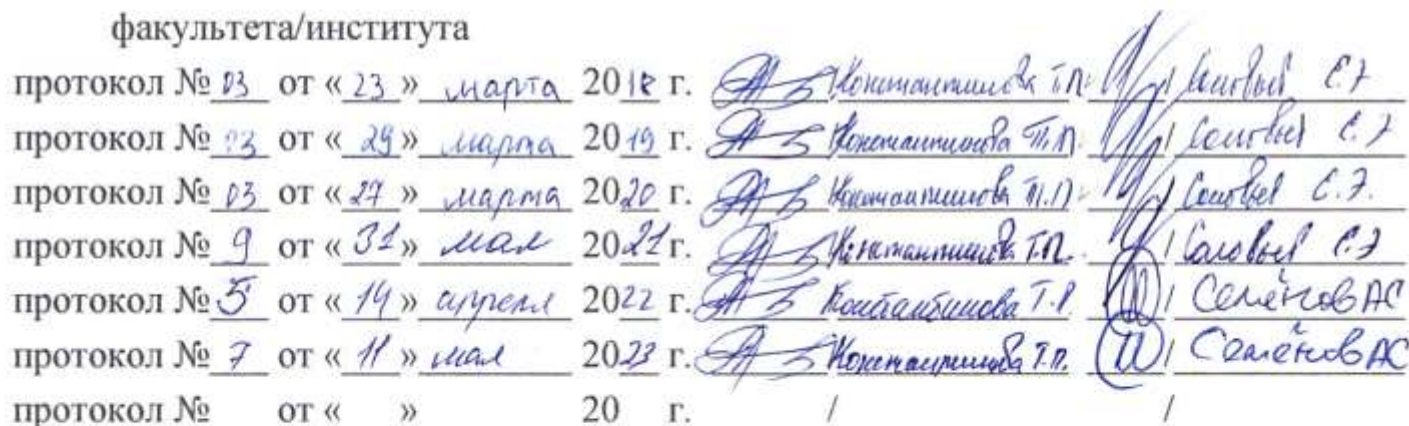 факультета/института
протокол № 03 от « 23 » марта 2018 г. / Константинова Т.П. / Соловьев С.Э
протокол № 03 от « 29 » марта 2019 г. / Константинова Т.П. / Соловьев С.Э
протокол № 03 от « 27 » марта 2020 г. / Константинова Т.П. / Соловьев С.Э.
протокол № 9 от « 31 » мая 2021 г. / Константинова Т.П. / Соловьев С.Э
протокол № 5 от « 14 » апреля 2022 г. / Константинова Т.П. / Семёнов АС
протокол № 7 от « 11 » мая 2023 г. / Константинова Т.П. / Семёнов АС
протокол № от « » 20 г. / /